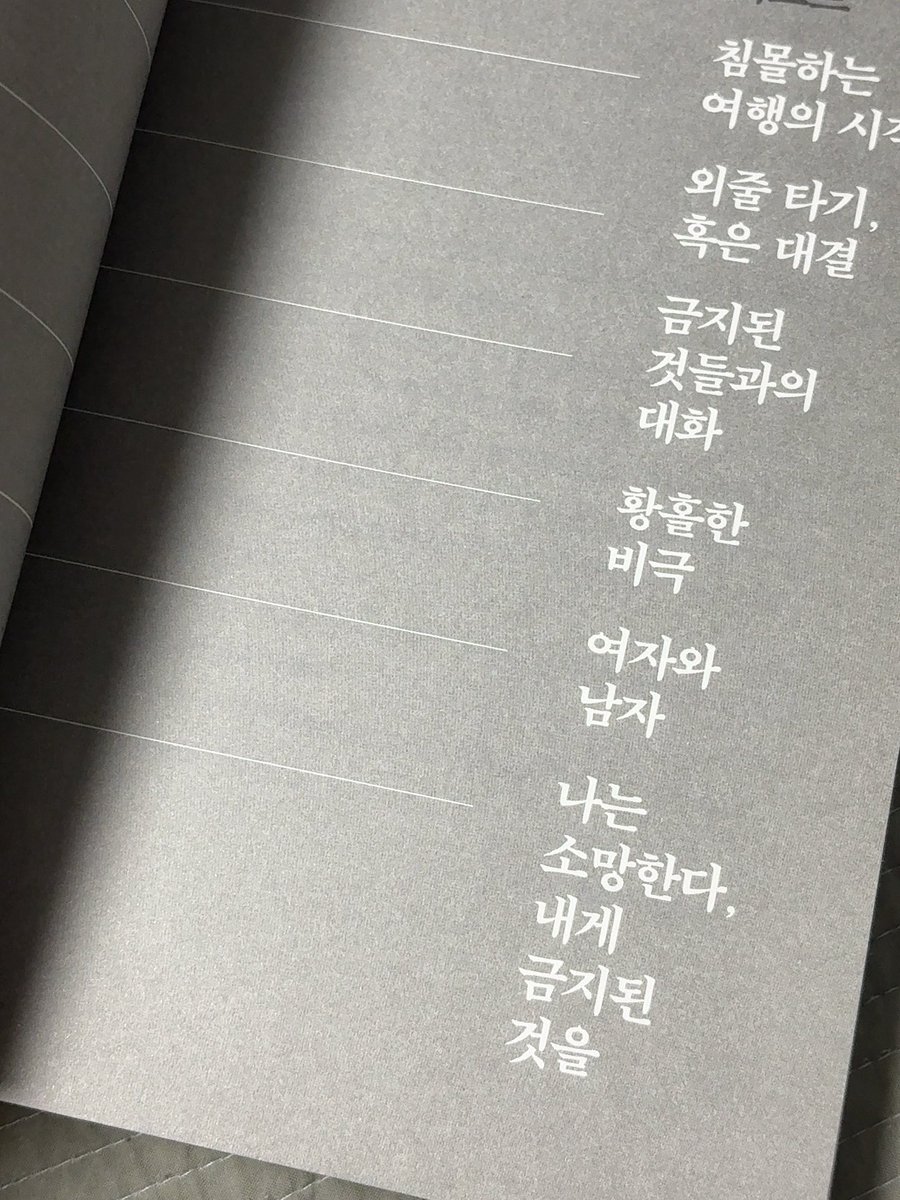 침몰하는
여행의
외줄 타기,
혹은 대결
금지된
것들과의
대화
황홀한
비극
여자와
남자
나는
소망한다,
내게
금지된
것을